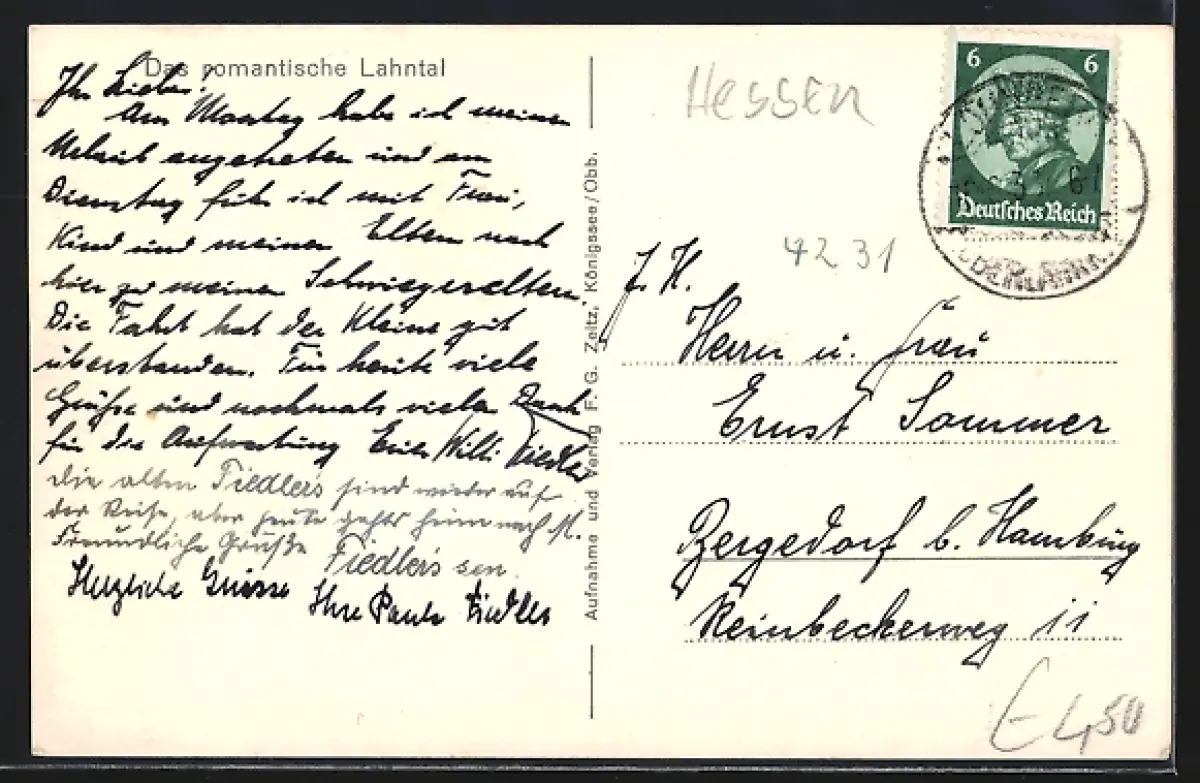 Das romantische Lahntal
Ihr Lieben!
Am Montag habe ich meinen
Urlaub angetreten und am
Dienstag fuhr ich mit Frau,
Kind und meinen Eltern nach
hier zu meinen Schwiegereltern.
Die Fahrt hat der Kleine gut
überstanden. Für heute viele
Grüße und nochmals vielen Dank
für die Aufwartung Euer Willi Fiedler
Die alten Fiedlers sind wieder auf
der Reise, aber heute gehts heim nach M.
Freundliche Grüße Fiedlers sen.
Herzliche Grüsse
Ihre Paula Fiedler
Aufnahme und Verlag F. G. Zeitz, Königssee/Obb.
Hessen
6 6
Deutsches Reich
4231
Herrn u. Frau
Ernst Sommer
Bergedorf b. Hamburg
Reinbeckerweg 11
4,50